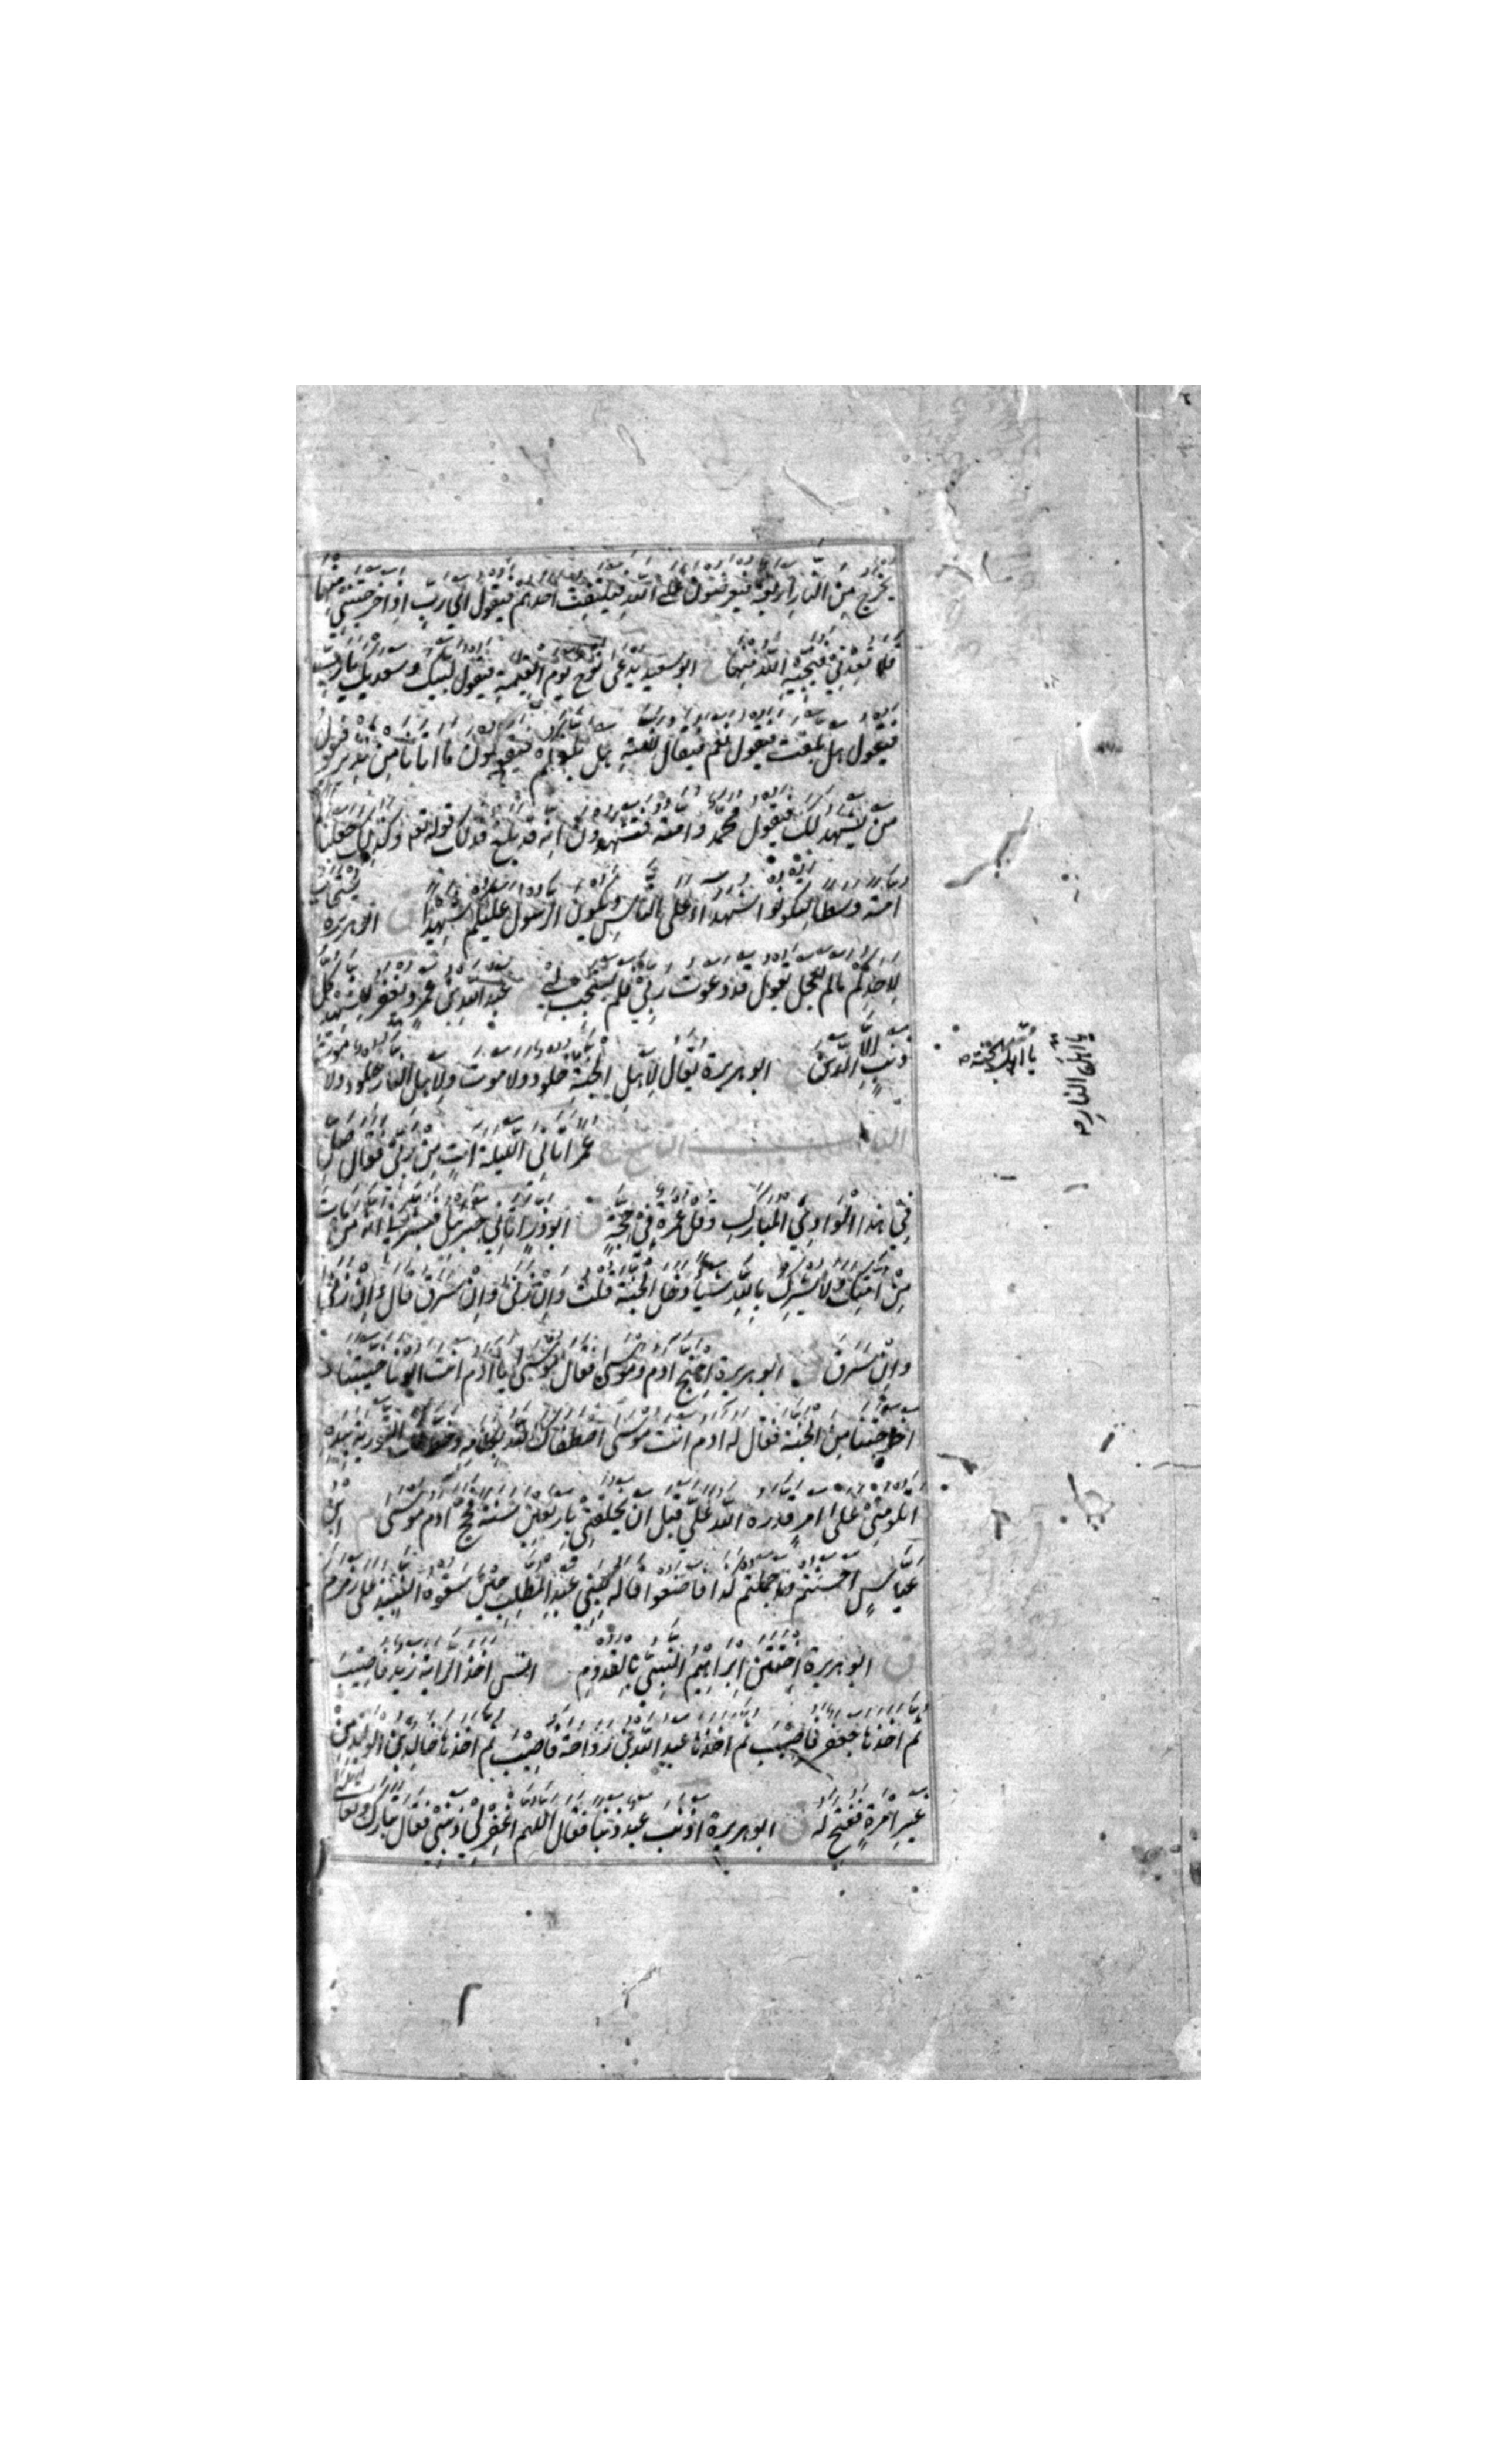 يخرج من النار اربعة فيعرضون على الله فيلتفت احدهم فيقول اي رب اذ اخرجتني منها
فلا تعدني فينجيه الله منها خ ابو سعيد يدعى نوح يوم القيمة فيقول لبيك وسعديك يا رب
فيقول هل بلغت فيقول نعم فيقال لامته هل بلغكم فيقولون ما اتانا من نذير فيقول
من يشهد لك فيقول محمد وامته فتشهدون انه قد بلغ فذلك قوله تعه وكذلك جعلناكم
امة وسطا لتكونوا شهداء على الناس ويكون الرسول عليكم شهيدا ق ابو هريرة يستجاب
لاحدكم ما لم يعجل يقول قد دعوت ربي فلم يستجب لي عبد الله بن عمرو يغفر للشهيد كل
ذنب الا الدين خ ابو هريرة يقال لاهل الجنة خلود ولا موت ولاهل النار خلود ولا موت
الباب التاسع خ عمر اتاني الليلة ات من ربي فقال صل
في هذا الوادي المبارك وقل عمرة في حجة ق ابو ذر اتاني جبرئيل فبشرني انه من مات
من امتك ولا يشرك بالله شيئا دخل الجنة قلت وان زنى وان سرق قال وان زنى
وان سرق ق ابو هريرة احتج ادم وموسى فقال موسى يا ادم انت ابونا خيبتنا و
اخرجتنا من الجنة فقال له ادم انت موسى اصطفاك الله بكلامه وخط لك التورية بيده
اتلومني على امر قدره الله علي قبل ان يخلقني باربعين سنة فحج ادم موسى م ابن
عباس احسنتم واجملتم كذا فاصنعوا قاله لبني عبد المطلب حين سقوه النبيذ على زمزم
ق ابو هريرة اختتن ابراهيم النبي بالقدوم خ انس اخذ الراية زيد فاصيب
ثم اخذها جعفر فاصيب ثم اخذها عبد الله بن رواحة فاصيب ثم اخذها خالد بن الوليد من
غير امرة ففتح له ق ابو هريرة اذنب عبد ذنبا فقال اللهم اغفر لي ذنبي فقال تبارك وتعالى
يا اهل الجنة
يا اهل النار